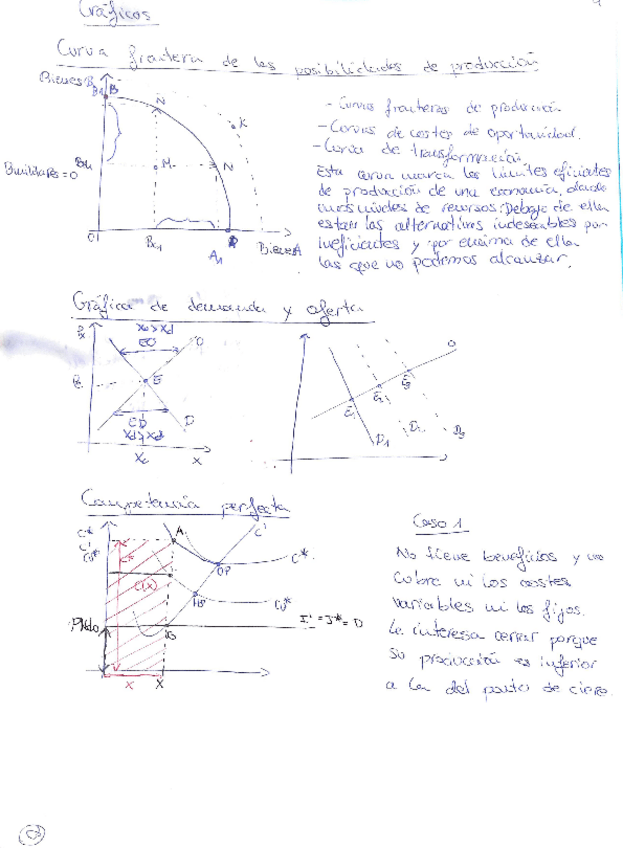 Gráficos
Curva frontera de las posibilidades de producción
Bienes B
B
N
K
M
N
0
A1
Bienes A
- Curvas fronteras de producción
- Curvas de costes de oportunidad.
- Curva de transformación.
Esta curva marca los límites eficientes
de producción de una economía, dados
unos niveles de recursos. Debajo de ella
estan las alternativas indeseables por
ineficientes y por encima de ella
las que no podemos alcanzar.
Gráfica de demanda y oferta
Xo > Xd
EO
O
E
ED
D
Xe
X
O
E1
E2
E3
D1
D2
D3
Competencia perfecta
C*
C'
CV*
A
C'
C*
OP
C*
CV*
I' = I* = D
X
X
Caso 1
No tiene beneficios y no
cubre ni los costes
variables ni los fijos.
Le interesa cerrar porque
su producción es inferior
a la del punto de cierre.